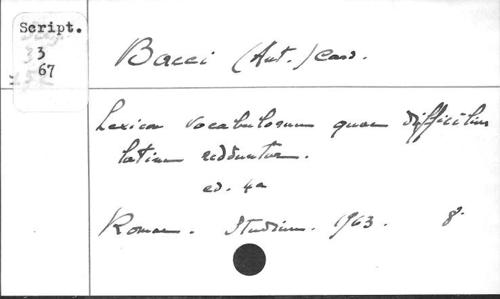 Script.
3
67
Bacci (Ant.) Card.
Lexicon vocabulorum quae difficilius
latine redduntur.
ed. 4a
Romae. Studium. 1963. 8°